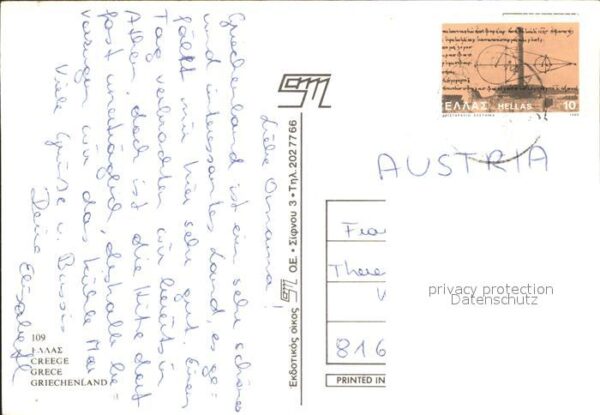 Liebe Omama!
Griechenland ist ein sehr schönes
und interessantes Land, es ge-
fällt mir hier sehr gut. Einen
Tag verbrachten wir bereits in
Athen, doch ist die Hitze dort
fast unerträglich, deshalb be-
vorzugen wir das kühle Meer
Viele Grüße u. Bussis
Deine Elisabeth
109
ΕΛΛΑΣ
CREECE
GRECE
GRIECHENLAND
Εκδοτικός οίκος Ο.Ε. • Σίφνου 3 • Τηλ. 2027766
ΕΛΛΑΣ HELLAS 10
AUSTRIA
Frau
There
V
816
PRINTED IN
privacy protection
Datenschutz